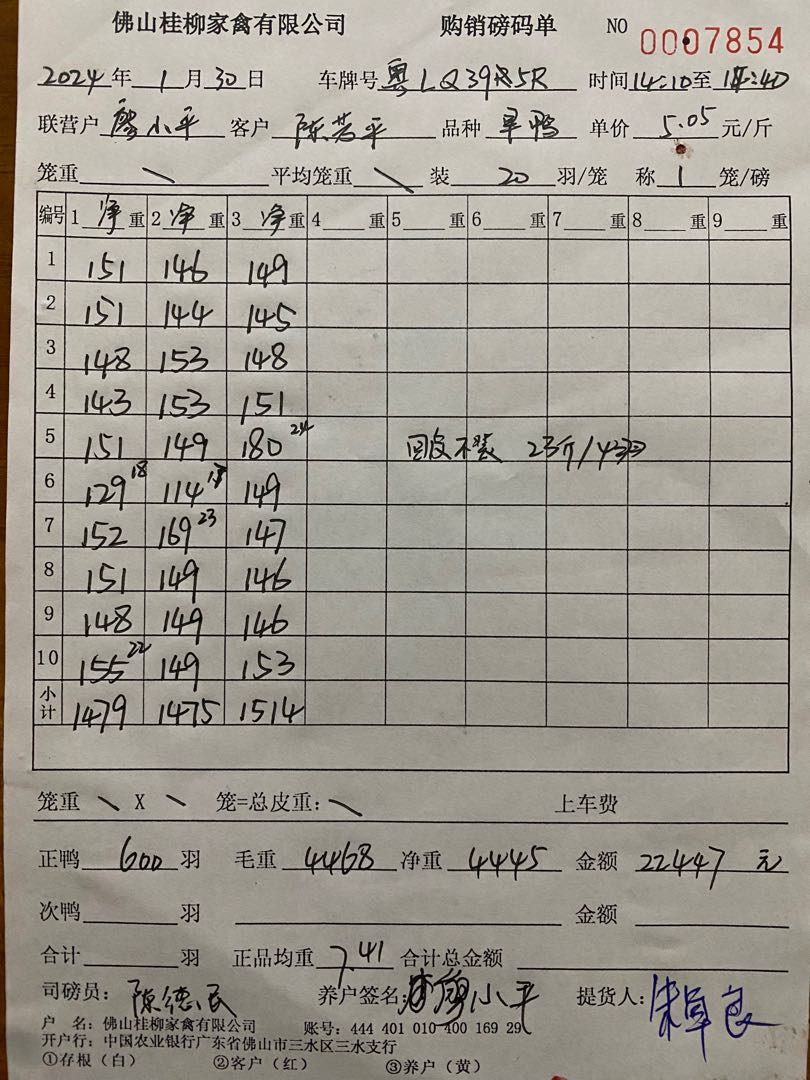 佛山桂柳家禽有限公司 购销磅码单 NO 0007854
2024年 1月 30日 车牌号 粤LQ3985R 时间 14:10至
联营户 廖小平 客户 陈芳平 品种 旱鸭 单价 5.05 元/斤
笼重 \ 平均笼重 \ 装 20 羽/笼 称 1 笼/磅
编号 1 净 重 2 净 重 3 净 重 4 重 5 重 6 重 7 重 8 重 9 重
1 151 146 149
2 151 144 145
3 148 153 148
4 143 153 151
5 151 149 180 24 23斤/4羽
6 129 18 114 149
7 152 169 23 147
8 151 149 146
9 148 149 146
10 155 22 149 153
小计 1479 1475 1514
笼重 \ X \ 笼=总皮重: \ 上车费
正鸭 600 羽 毛重 4468 净重 4445 金额 22447 元
次鸭 羽 金额
合计 羽 正品均重 7.41 合计总金额
司磅员: 陈德民 养户签名: 廖小平 提货人:
户 名: 佛山桂柳家禽有限公司 账号: 444 401 010 400 169 29
开户行: 中国农业银行广东省佛山市三水区三水支行
①存根(白) ②客户(红) ③养户(黄)